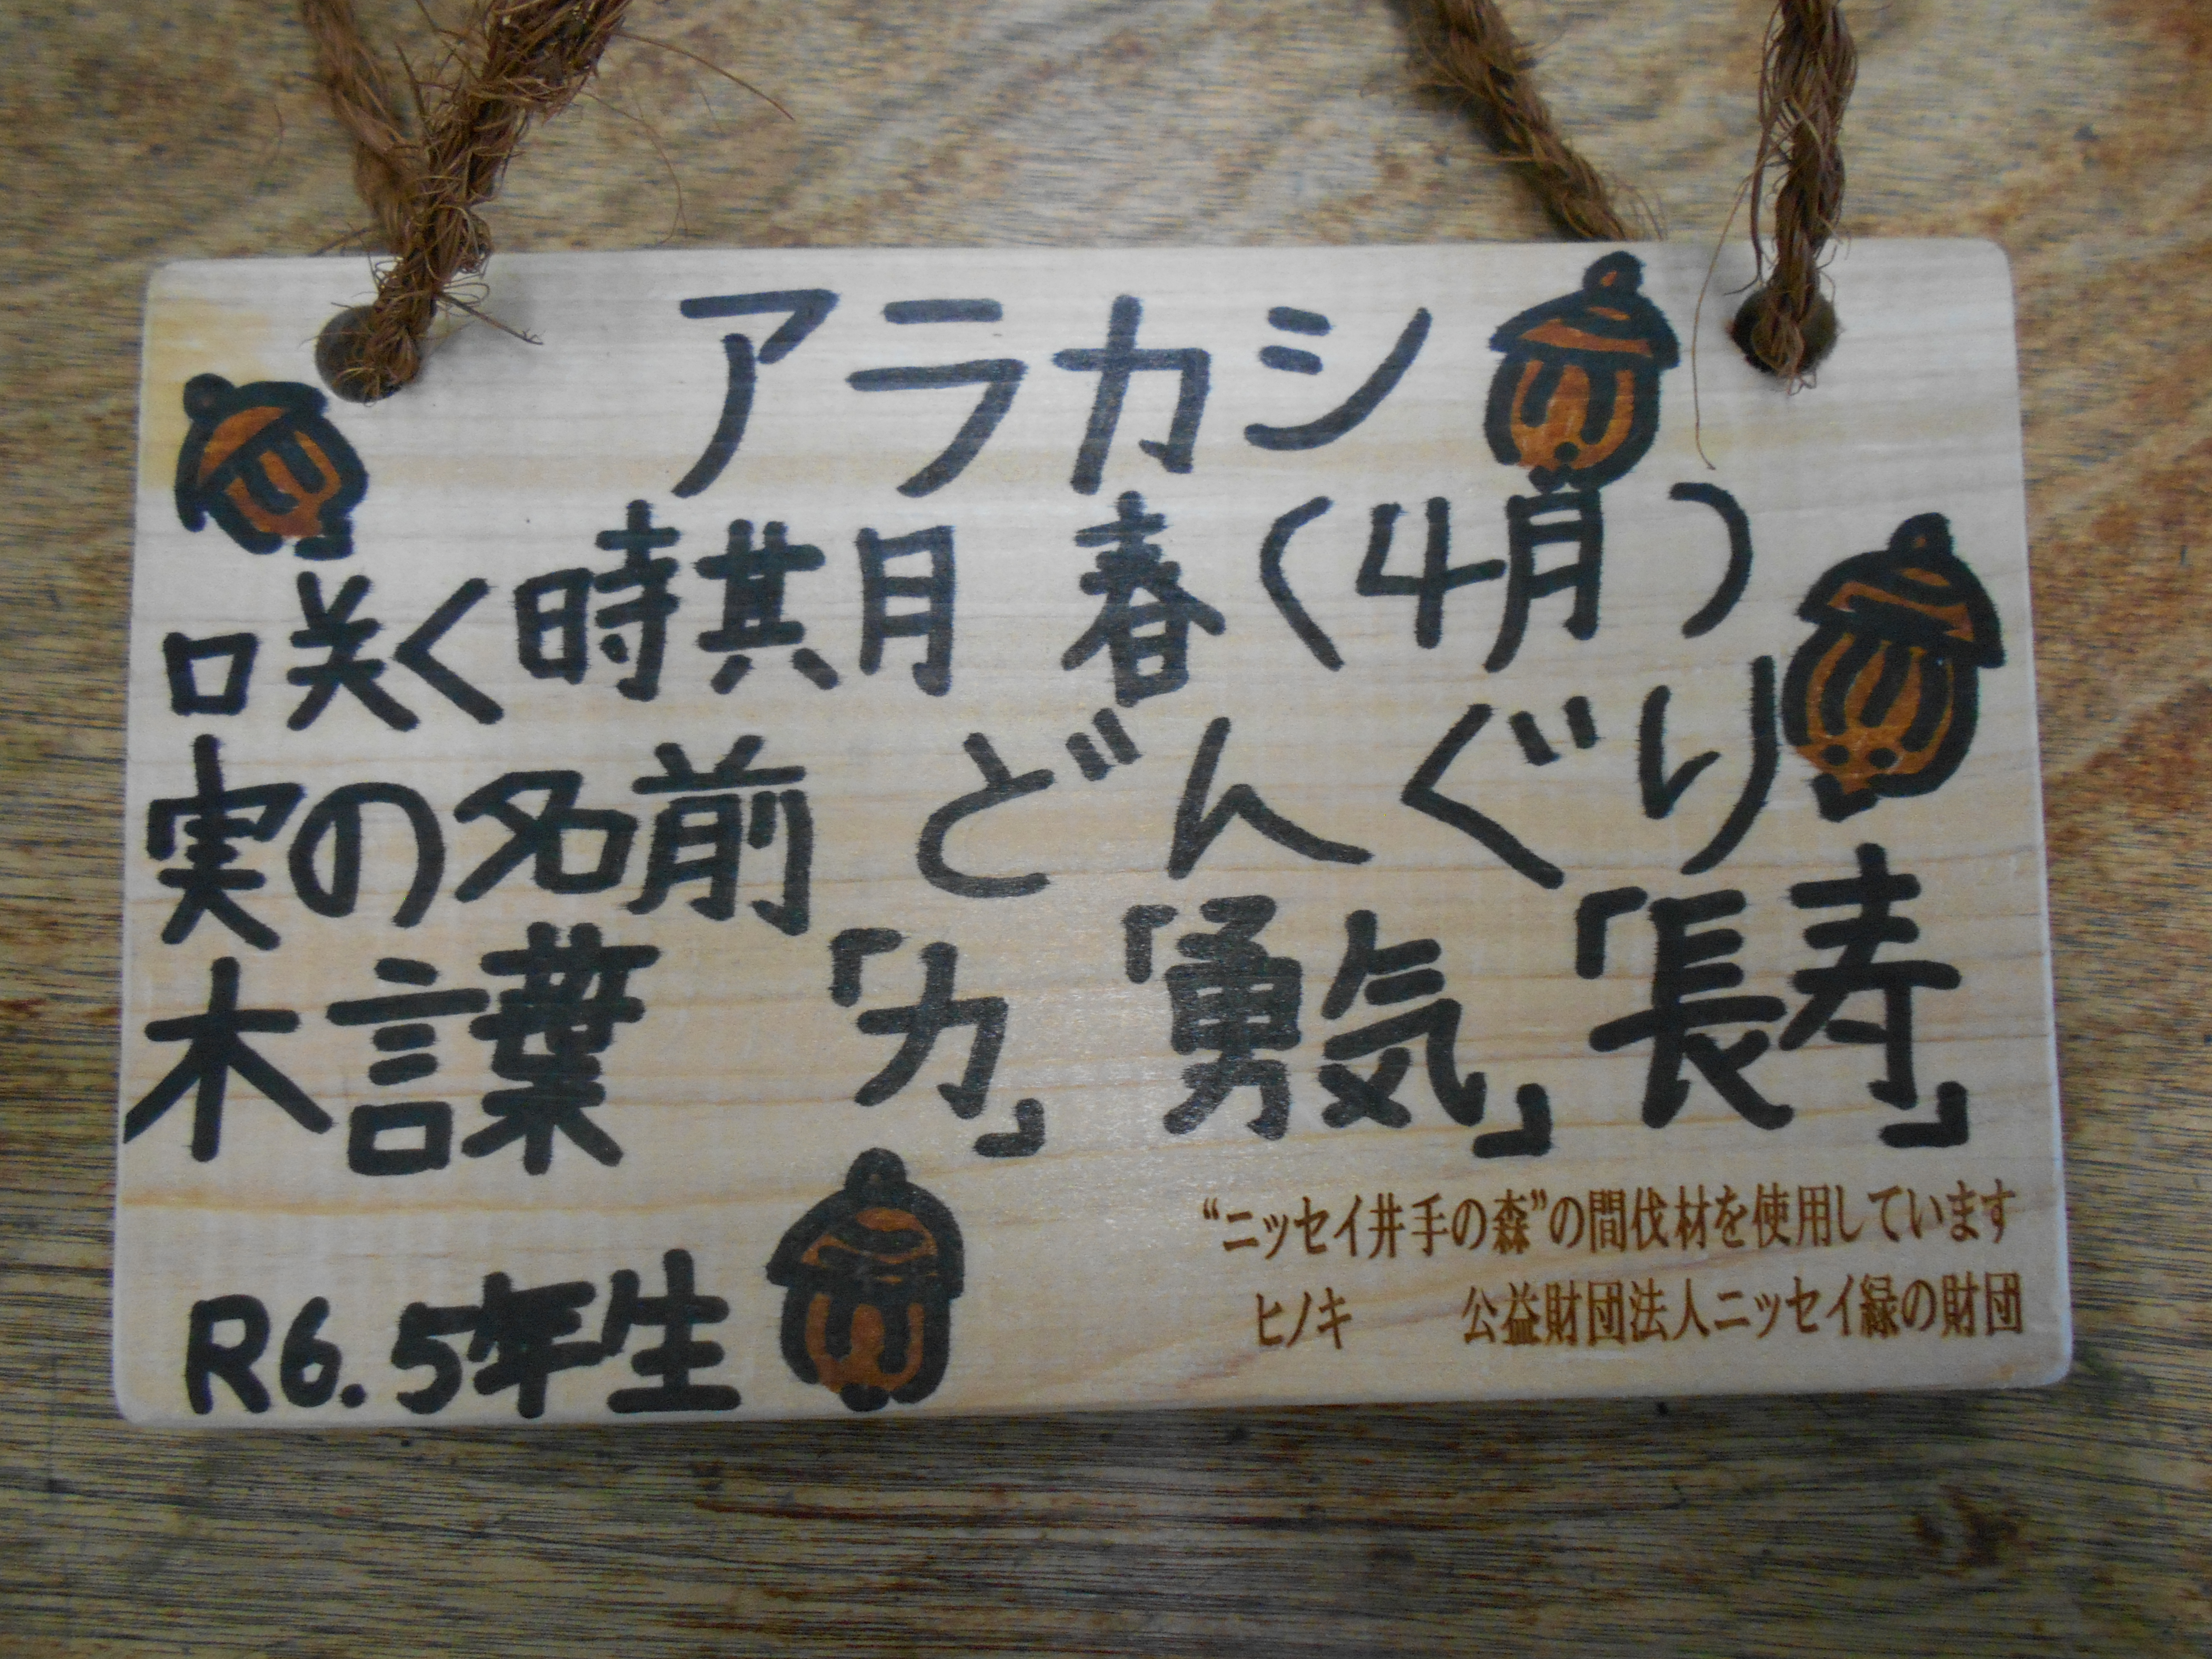 アラカシ
咲く時期 春(4月)
実の名前 どんぐり
木言葉 「力」「勇気」「長寿」
R6.5年生
“ニッセイ井手の森”の間伐材を使用しています
ヒノキ 公益財団法人ニッセイ緑の財団